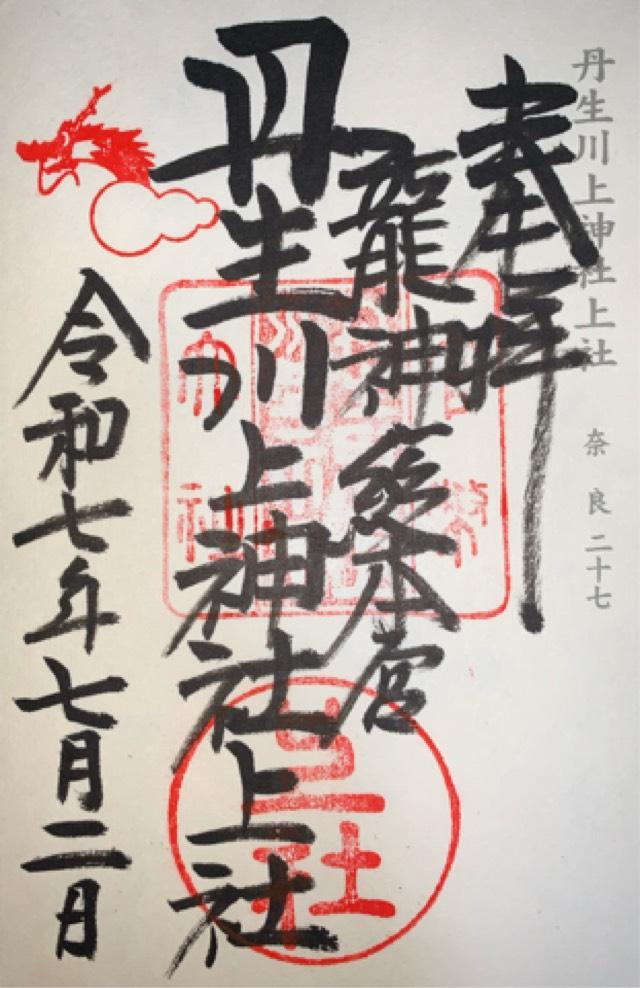 丹生川上神社上社 奈良二十七
奉拝
龍神総本宮
丹生川上神社上社
令和七年七月二日
上社